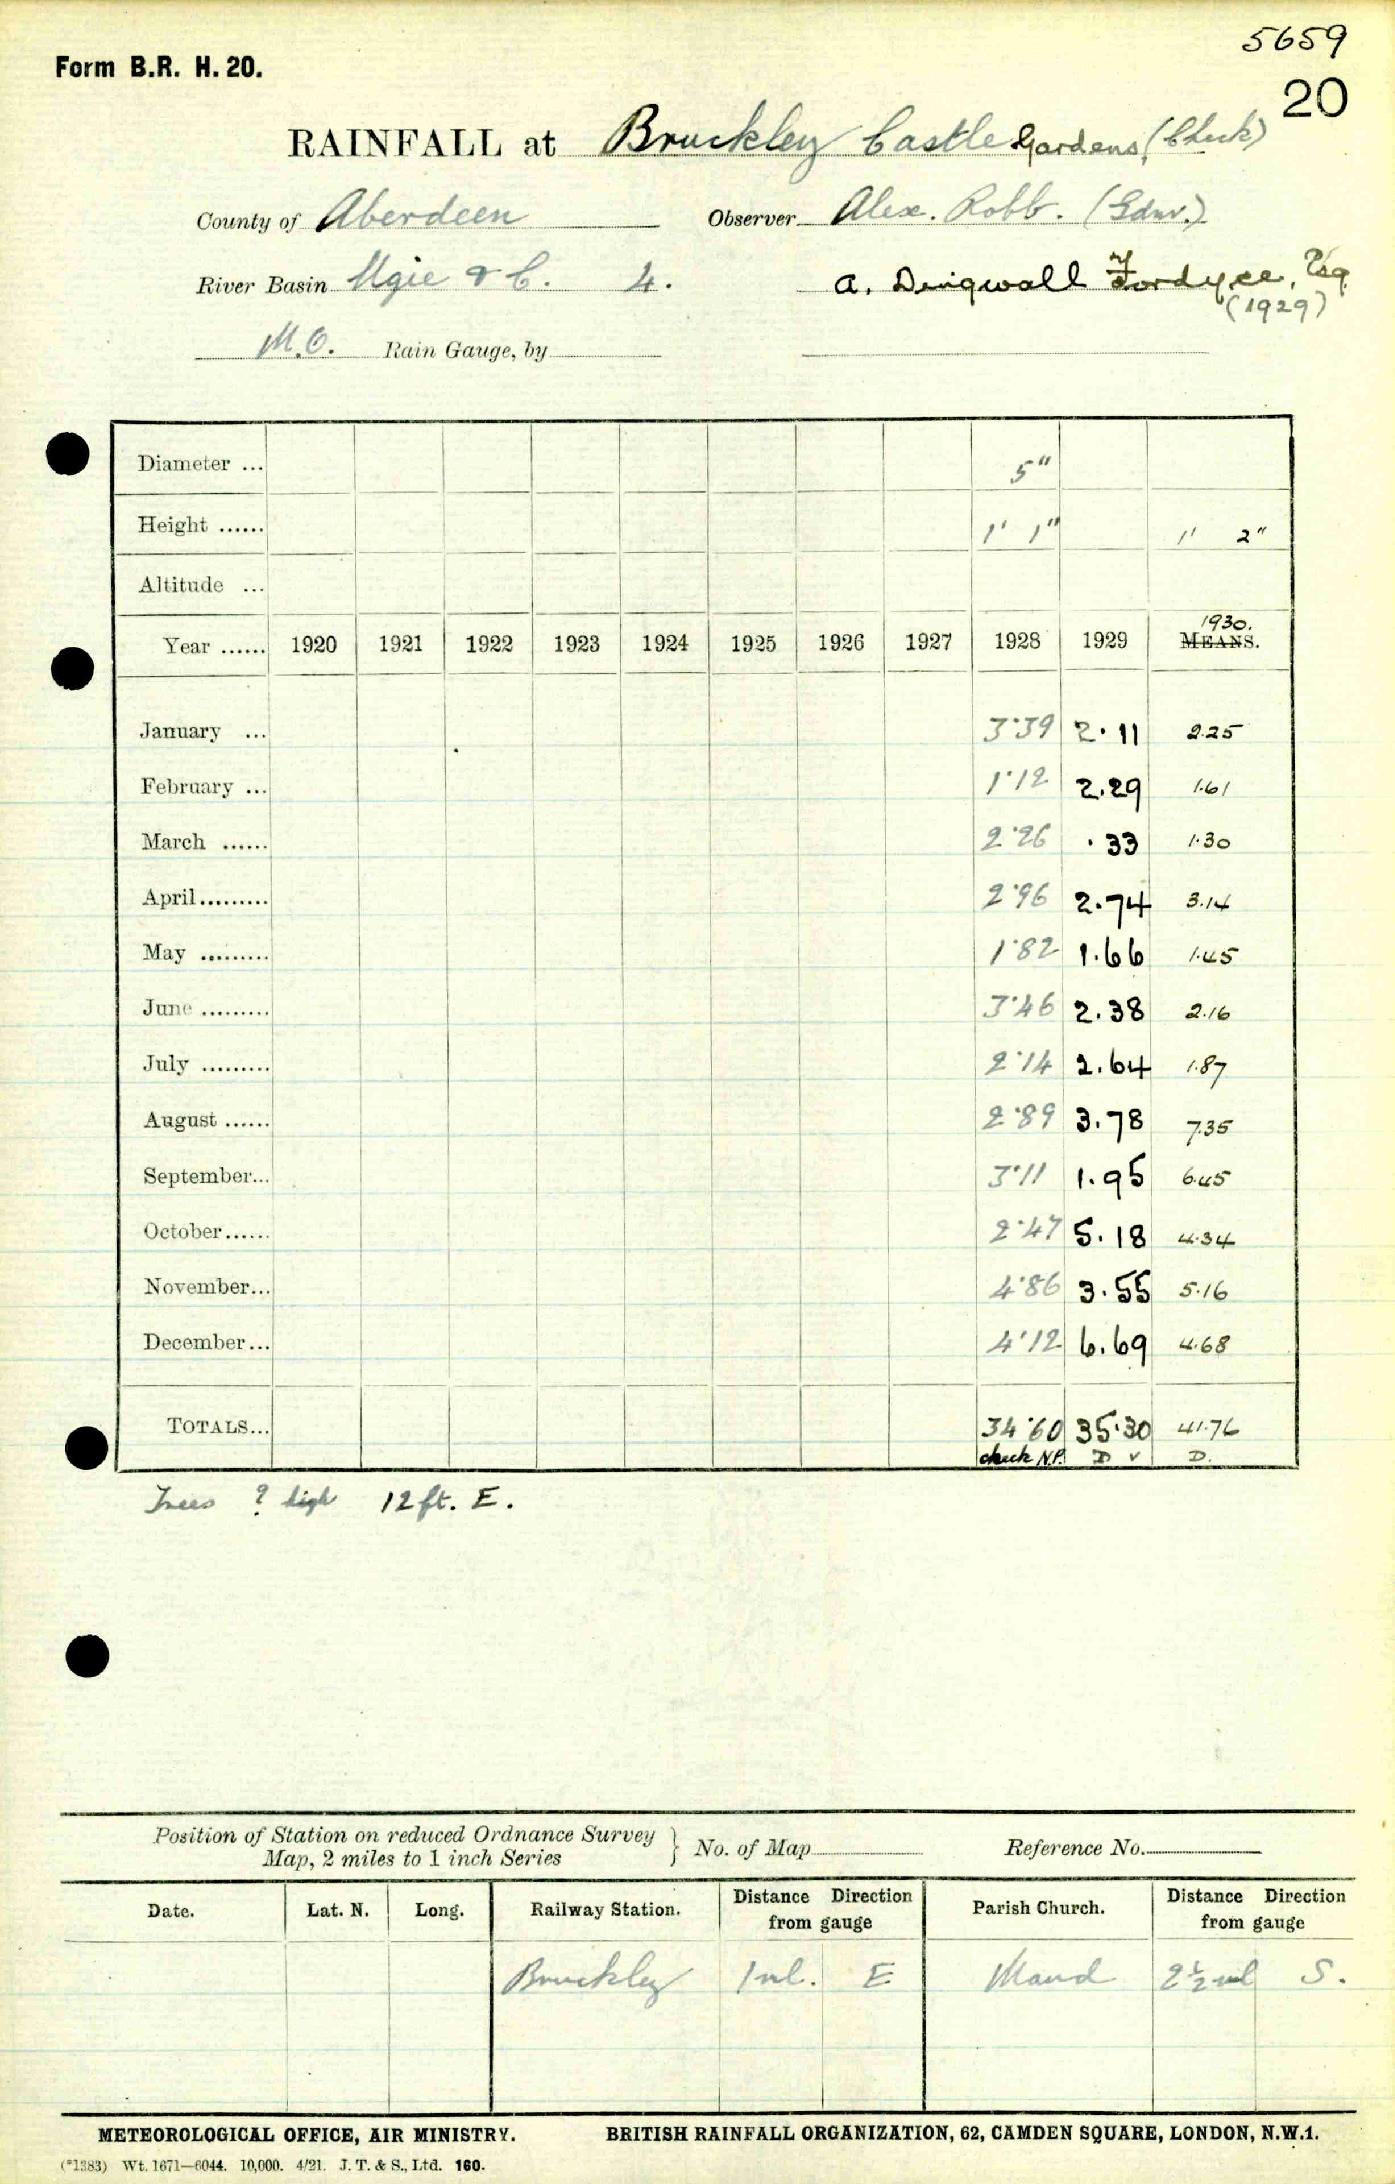 5659
Form B.R. H. 20.
20
RAINFALL at Bruckley Castle Gardens, (Check)
County of Aberdeen Observer Alex. Robb. (Gdnr.)
River Basin Ugie & C. 4. A. Dingwall Fordyce, Esq
(1929)
M.O. Rain Gauge, by
Diameter ... 5"
Height ...... 1' 1" 1' 2"
Altitude ...
1930.
Year ...... 1920 1921 1922 1923 1924 1925 1926 1927 1928 1929 MEANS.
January ... 3·39 2·11 2.25
February ... 1·12 2.29 1.61
March ...... 2·26 ·33 1.30
April......... 2·96 2.74 3.14
May ......... 1·82 1.66 1.45
June ......... 3·46 2.38 2.16
July ......... 2·14 2.64 1.87
August ...... 2·89 3.78 7.35
September... 3·11 1.95 6.45
October...... 2·47 5.18 4.34
November... 4·86 3.55 5.16
December... 4·12 6.69 4.68
TOTALS... 34·60 35·30 41.76
check N.P. D v D.
Trees ? high 12 ft. E.
Position of Station on reduced Ordnance Survey
Map, 2 miles to 1 inch Series } No. of Map Reference No.
Date. Lat. N. Long. Railway Station. Distance Direction
from gauge Parish Church. Distance Direction
from gauge
Bruckley 1 ml. E Maud 2½ ml S.
METEOROLOGICAL OFFICE, AIR MINISTRY. BRITISH RAINFALL ORGANIZATION, 62, CAMDEN SQUARE, LONDON, N.W.1.
(*1383) Wt. 1671—6044. 10,000. 4/21. J. T. & S., Ltd. 160.